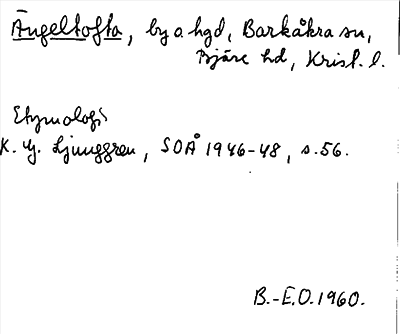 Ängeltofta, by o hgd, Barkåkra sn,
Bjäre hd, Krist. l.
Etymologi
K. G. Ljunggren, SOÅ 1946-48, s.56.
B.-E.O.1960.